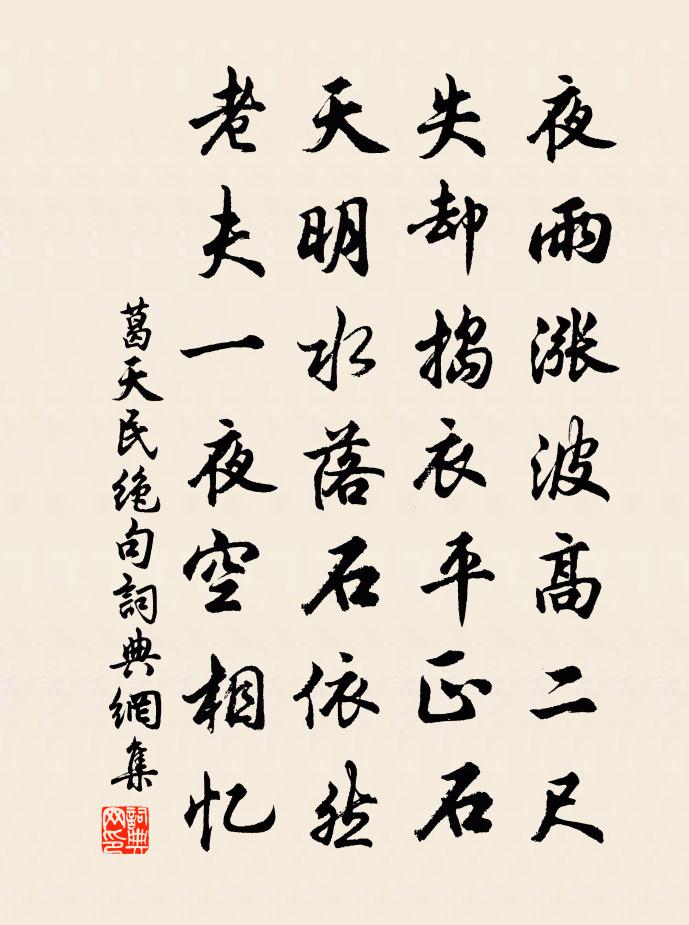 夜雨漲波高二尺
失却搗衣平正石
天明水落石依然
老夫一夜空相忆
葛天民絶句詞典網集
詞典網印